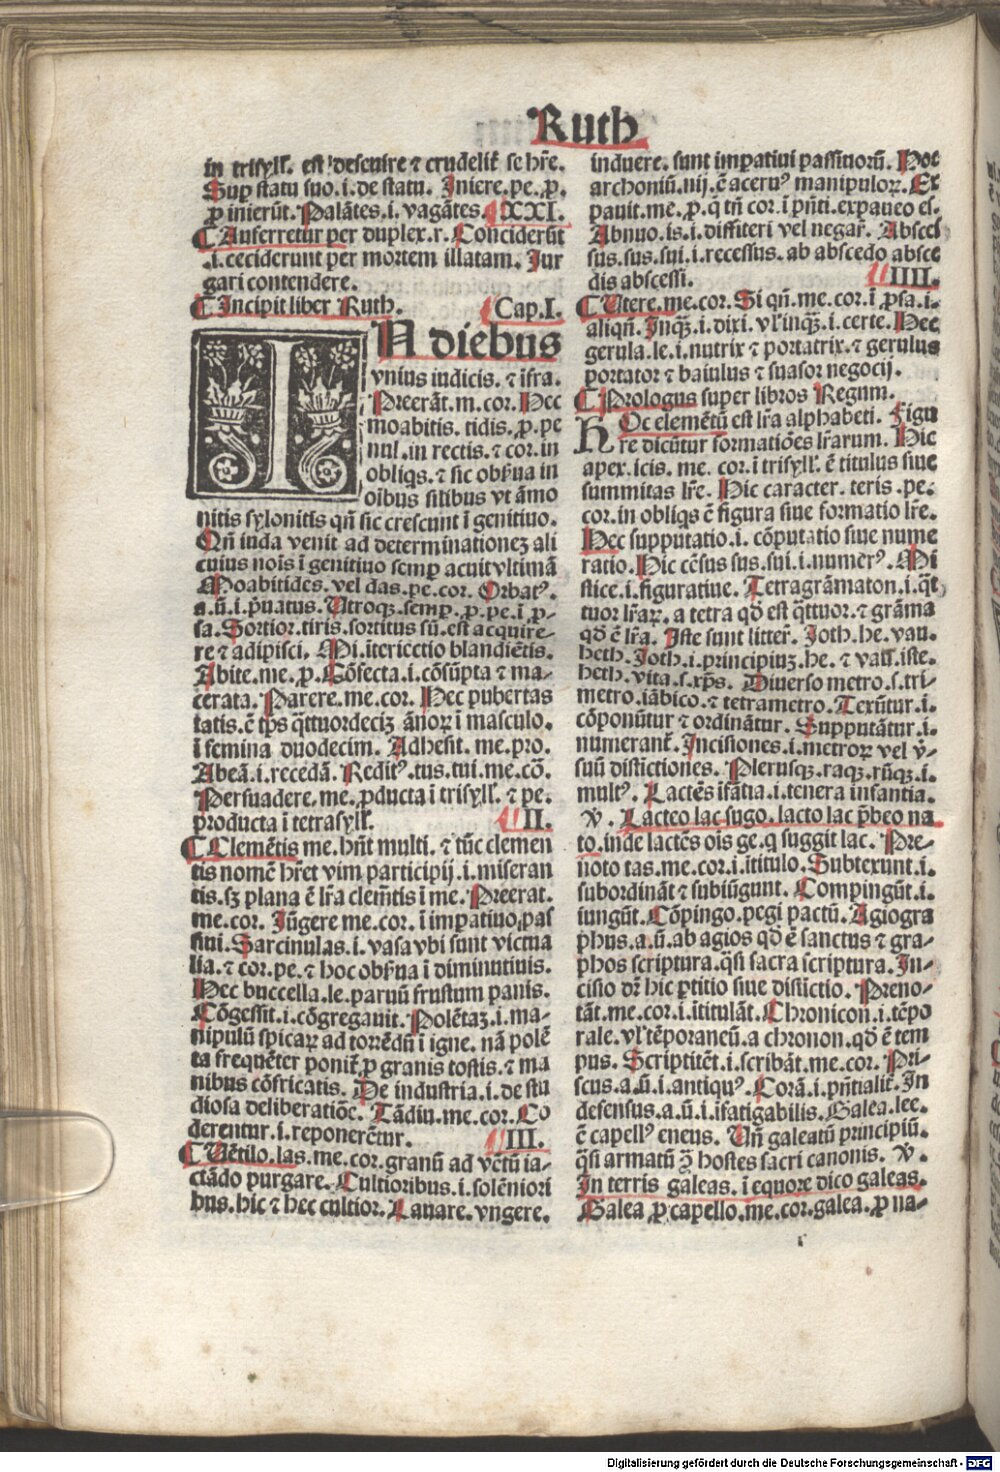 Ruth
in trisyll̃. est descuire ⁊ crudelit̃ se hr̃e.
Sup statu suo.i.de statu. Iniere.pe.p̱.
p̱ inierũt. Palãtes.i.vagãtes. XXI.
Auferretur per duplex.r. Conciderũt
.i.ceciderunt per mortem illatam. Iur
gari contendere.
Incipit liber Ruth. Cap.I.
IN diebus
vnius iudicis. ⁊ ĩfra.
Preerãt.m.cor. Hec
moabitis. tidis. p̱.pe
nul.in rectis.⁊ cor.in
obliqs.⁊ sic obs̃ua in
oĩbus silibus vt ãmo
nitis sylonitis qñ sic crescunt ĩ genitiuo.
Qñ inda venit ad determinationeʒ ali
cuius nois ĩ genitiuo semp acuit vltimã
Moabitides. vel das.pe.cor. Orbatꝰ.
a.ũ.i. p̃uatus. Utroqʒ.semp.p̱.pe.ĩ p̱-
sa. Sortior.tiris.sortitus sũ.est acquire-
re ⁊ adipisci. Mi.iteriectio blandiẽtis.
Abite.me.p̱. Cõfecta.i.cõsũpta ⁊ ma-
cerata. Parere.me.cor. Hec pubertas
tatis.ẽ tp̃s q̃ttuordeciʒ ãnoꝝ ĩ masculo.
ĩ femina duodecim. Adhesit.me.pro.
Abeã.i.recedã. Reditꝰ.tus.tui.me.cõ.
Persuadere.me.p̱ducta ĩ trisyll̃.⁊ pe.
producta ĩ tetrasyll̃. II.
Clemẽtis me.hñt multi.⁊ tũc clemen
tis nomẽ hr̃et vim participij.i.miseran
tis.sʒ plana ẽ lr̃a clem̃tis ĩ me. Preerat.
me.cor. Iũgere me.cor.ĩ impatiuo pas
siui. Sarcinulas.i.vasa vbi sunt victua
lia.⁊ cor.pe.⁊ hoc obs̃ua ĩ diminutiuis.
Hec buccella.le.paruũ frustum panis.
Cõgessit.i.cõgregauit. Polẽtaʒ.i.ma-
nipulũ spicaꝝ ad torrẽdũ ĩ igne. nã polẽ
ta frequẽter ponit̃ p̱ granis tostis.⁊ ma
nibus cõfricatis. De industria.i.de stu
diosa deliberatiõe. Tãdiu.me.cor. Co
derentur.i.reponerẽtur. III.
Uẽtilo.las.me.cor.granũ ad vẽtũ ia-
ctãdo purgare. Cultioribus.i.solẽniori
bus.hic ⁊ hec cultior. Lauare.vngere.
induere. sunt impatiui passiuorũ. Hoc
archoniũ.nij.ẽ aceruꝰ manipuloꝝ. Ex
pauit.me.p̱.q̃ tñ cor.ĩ pñti.expaueo es.
Abnuo.is.i.diffiteri vel negar̃. Absces
sus.sus.sui.i.recessus. ab abscedo absce
dis abscessi. IIII.
Utere.me.cor. Si qñ.me.cor.ĩ p̱sa.i.
aliqñ. Inqʒ.i.dixi. vl̃ inqʒ.i.certe. Hec
gerula.le.i.nutrix ⁊ portatrix.⁊ gerulus
portator ⁊ baiulus ⁊ suasor negocij.
Prologus super libros Regum.
HOc elemẽtũ est lr̃a alphabeti. Figu
re dicũtur formatiões lr̃arum. Hic
apex.icis. me. cor.ĩ trisyll̃.ẽ titulus siue
summitas lr̃e. Hic caracter. teris .pe.
cor.in obliqs ẽ figura siue formatio lr̃e.
Hec supputatio.i. cõputatio siue nume
ratio. Hic cẽsus sus.sui.i.numerꝰ. Mi
stice.i.figuratiue. Tetragrãmaton.i.q̃t
tuor lr̃aꝝ.a tetra qd̃ est q̃ttuor.⁊ grãma
qd̃ ẽ lr̃a. Iste sunt litter̃. Ioth.he.vau.
heth. Ioth.i.principiuʒ.he.⁊ vau.iste.
heth.vita.s.xp̃s. Diuerso metro.s.tri-
metro.iãbico.⁊ tetrametro. Texũtur.i.
cõponũtur ⁊ ordinãtur. Supputãtur.i.
numerant̃. Incisiones.i.metroꝝ vel ṽ-
suũ distictiones. Plerusqʒ.raqʒ.rũqʒ.i.
multꝰ. Lactẽs ĩfãtia.i.tenera infantia.
ṽ. Lacteo lac sugo. lacto lac p̃beo na
to.inde lactẽs oĩs ge.q̃ suggit lac. Pre-
noto tas.me.cor.i.ĩtitulo. Subtexunt.i.
subordinãt ⁊ subiũgunt. Compingũt.i.
iungũt. Cõpingo.pegi pactũ. Agiogra
phus.a.ũ.ab agios qd̃ ẽ sanctus ⁊ gra-
phos scriptura.q̃si sacra scriptura. In-
cisio dr̃ hic p̱titio siue distictio. Preno-
tãt.me.cor.i.ĩtitulãt. Chronicon.i.tẽpo
rale. vl̃ tẽporaneũ.a chronon.qd̃ ẽ tem
pus. Scriptitẽt.i.scribãt.me.cor. Pri-
scus.a.ũ.i.antiquꝰ. Corã.i.pñtialit̃. In
defensus.a.ũ.i.ĩfatigabilis. Galea.lee.
ẽ capellꝰ eneus. Uñ galeatũ principiũ.
q̃si armatũ ꝯ̃ hostes sacri canonis. V.
In terris galeas. ĩ equore dico galeas.
Galea p̱ capello.me.cor.galea.p̱ na-
Digitalisierung gefördert durch die Deutsche Forschungsgemeinschaft - DFG